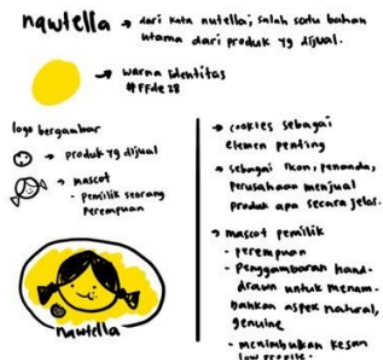 nawtella → dari kata nutella; salah satu bahan
utama dari produk yg dijual.
→ warna identitas
#FFde28
logo bergambar
→ produk yg dijual
→ mascot
- Pemilik seorang
Perempuan
nawtella
→ cookies sebagai
elemen penting
→ sebagai ikon, penanda,
perusahaan menjual
produk apa secara jelas.
→ mascot pemilik
- perempuan
- Penggambaran hand-
drawn untuk menam-
bahkan aspek natural,
genuine
- menimbulkan kesan
low profile.